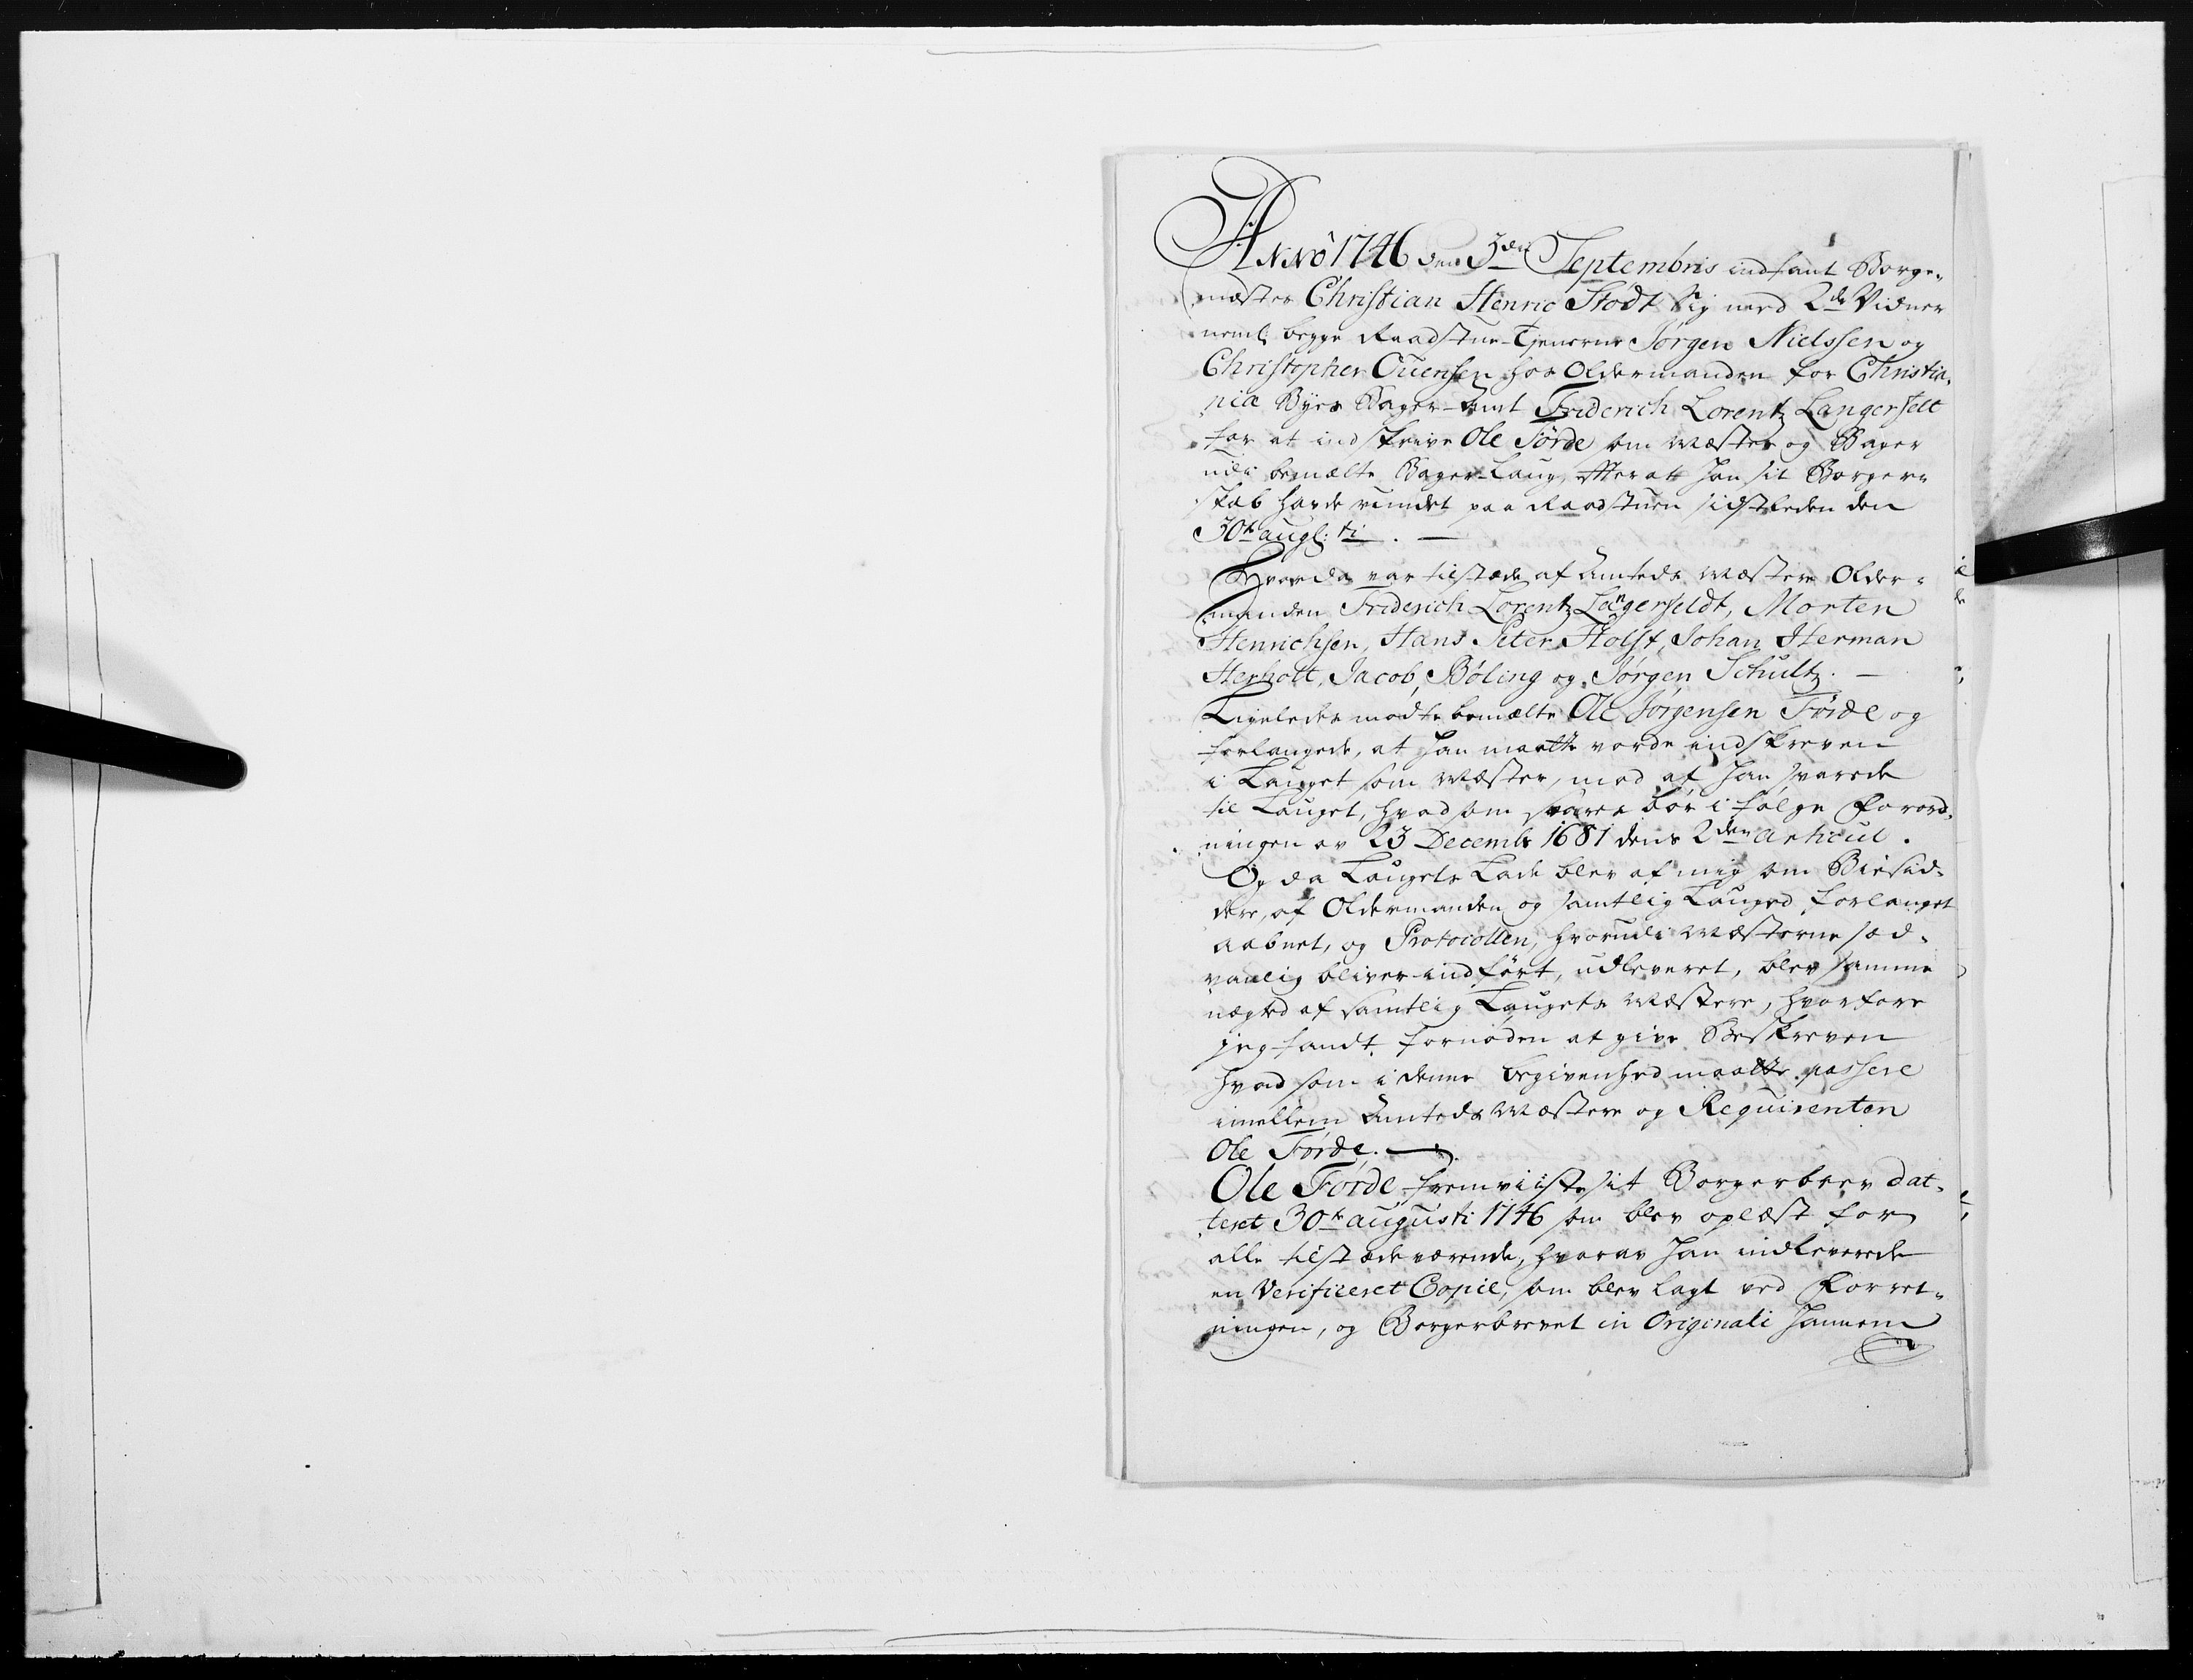 Anno 1746 den 3den Septembris indfant Borge-
mester Christian Henric Stodt Sig med 2de Vidner
neml: begge Raadstue-Tjenerne Jørgen Nielssen og
Christopher Ouensen hos Oldermanden for Christia-
nia Byes Bager-Amt Friderich Lorentz Langerfelt
for at indskrive Ole Førde som Mester og Bager
udi bemælte Bager-Laug, efter at han sit Borger-
skab havde vundet paa Raadstuen sidstleden den
30te augs:ti. —
Hvorda var tilstæde af Amteds Mestere Older-
manden Friderich Lorentz Langerfeldt, Morten
Henrichsen, Hans Peter Holst, Johan Herman
Herholt, Jacob Bøling og Jørgen Schultz. —
Ligeledes mødte bemælte Ole Jørgensen Førde og
forlangede, at han maatte vorde indskreven
i Lauget som Mester, mod at han svarede
til Lauget, hvad som svares bør i følge Forord-
ningen av 23 Decembr 1681 dens 2den articul.
Og da Laugets Lade blev af mig som Bisid-
dere, af Oldermanden og samtlig Lauged forlanget
aabnet, og Protocollen, hvorudi Mesterne sæd-
vanlig bliver indført, udleveret, blev samme
nægted af samtlig Laugets Mestere, hvorfore
jeg fandt fornøden at give Beskreven
hvad som i denne begivenhed maatte passere
imellem Amteds Mestere og Requirenten
Ole Førde. —
Ole Førde fremviiste sit Borgerbrev dat-
teret 30te augusti 1746 som blev oplæst for
alle tilstædeværende, hvorav han indleverede
en Verificeret Copie, som blev lagt ved Forret-
ningen, og Borgerbrevet in Originali hannem